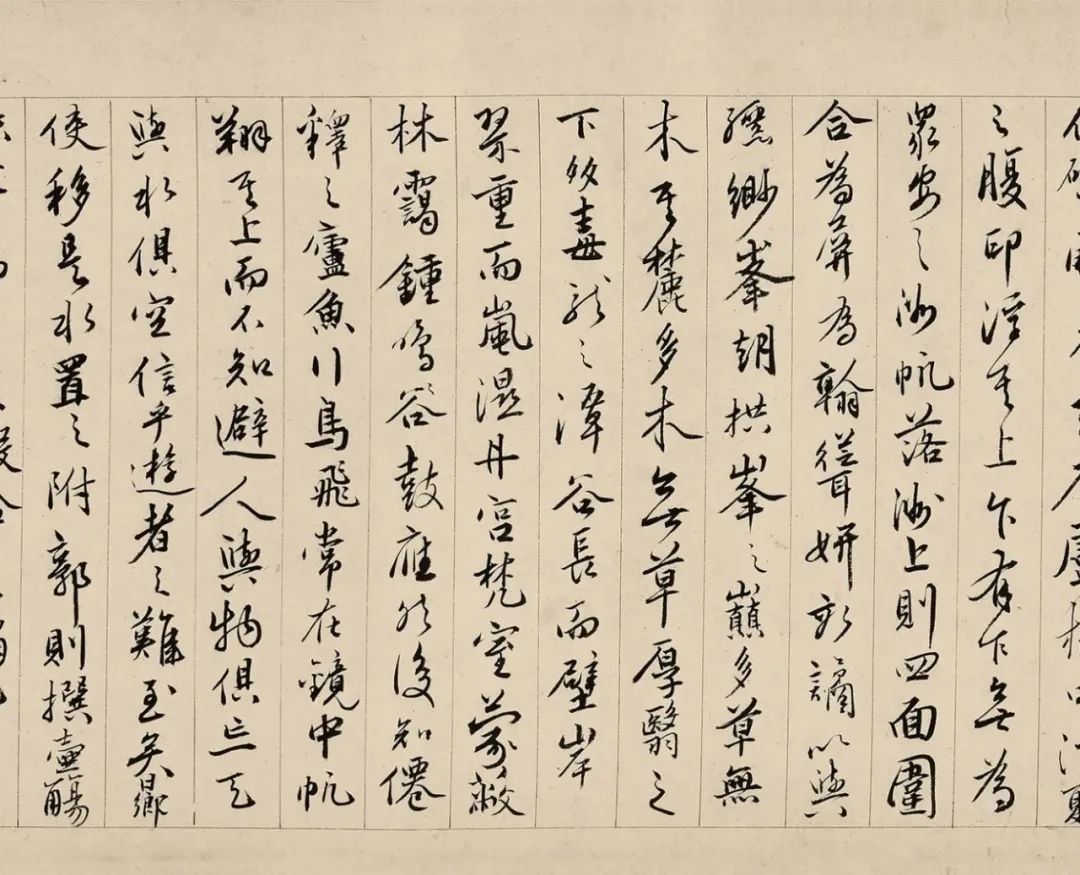 之腹印浮其上乍有乍無為
眾安之洲帆落洲上則四面圍
合為屏為翰聳妍譎以與
縹緲峯朝拱峯之巔多草無
木其麓多木無草厚翳之
下多毒龍之潭谷長而壁岸
翠重而嵐濕丹宫梵室蒙蔽
林靄鍾鳴谷鼓應然後知僊
釋之廬魚行鳥飛常在鏡中帆
翔其上而不知避人與物俱忘天
與水俱空信乎遊者之難至矣鄉
使移是水置之附郭則撰壺觴